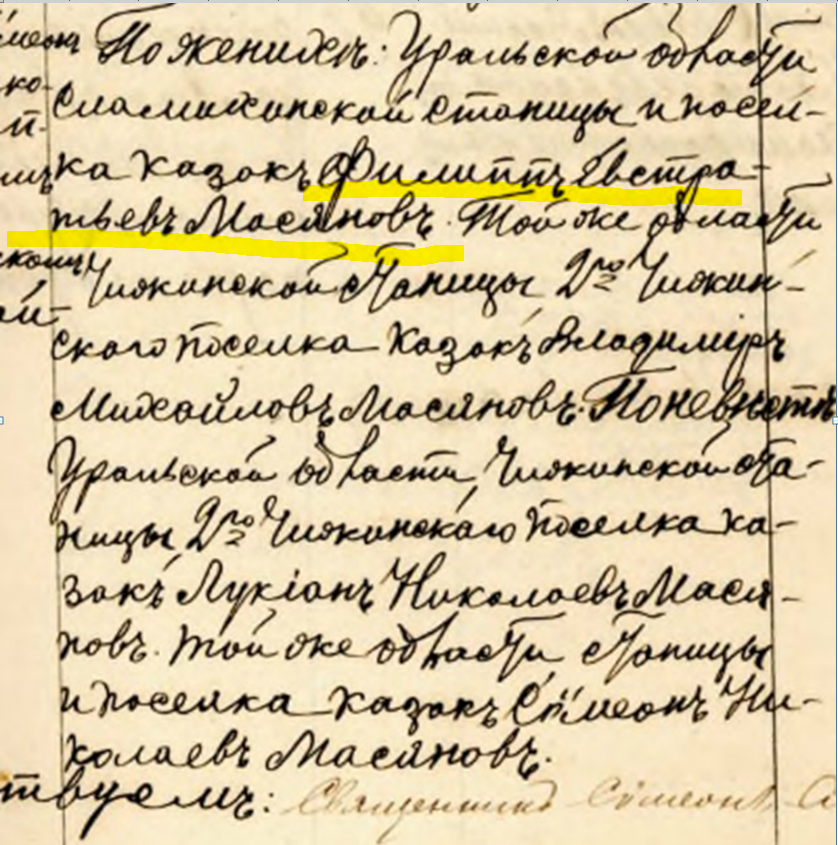 По женихѣ: Уральской области
Сламихинской станицы и посел-
ка казакъ Филиппъ Евстра-
тьевъ Масяновъ. Той же области
Чижинской станицы 2го Чижин-
скаго поселка казакъ Владимiръ
Михайловъ Масяновъ. По невѣстѣ
Уральской области, Чижинской ста-
ницы 2го Чижинскаго поселка ка-
закъ Лукiанъ Николаевъ Мася-
новъ. Той же области станицы
и поселка казакъ Сѵмеонъ Ни-
колаевъ Масяновъ.
твуемъ: Священникъ Сѵмеонъ